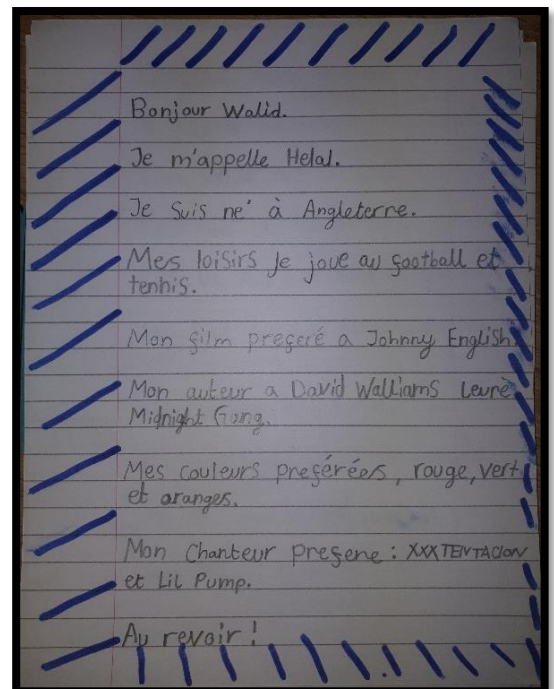 Bonjour Walid.
Je m'appelle Helal.
Je suis ne' à Angleterre.
Mes loisirs je joue au football et
tennis.
Mon film preferé a Johnny English.
Mon auteur a David Walliams Leurè
Midnight Gang.
Mes couleurs preférées, rouge, vert
et oranges.
Mon Chanteur prefene : XXXTENTACION
et Lil Pump.
Au revoir !